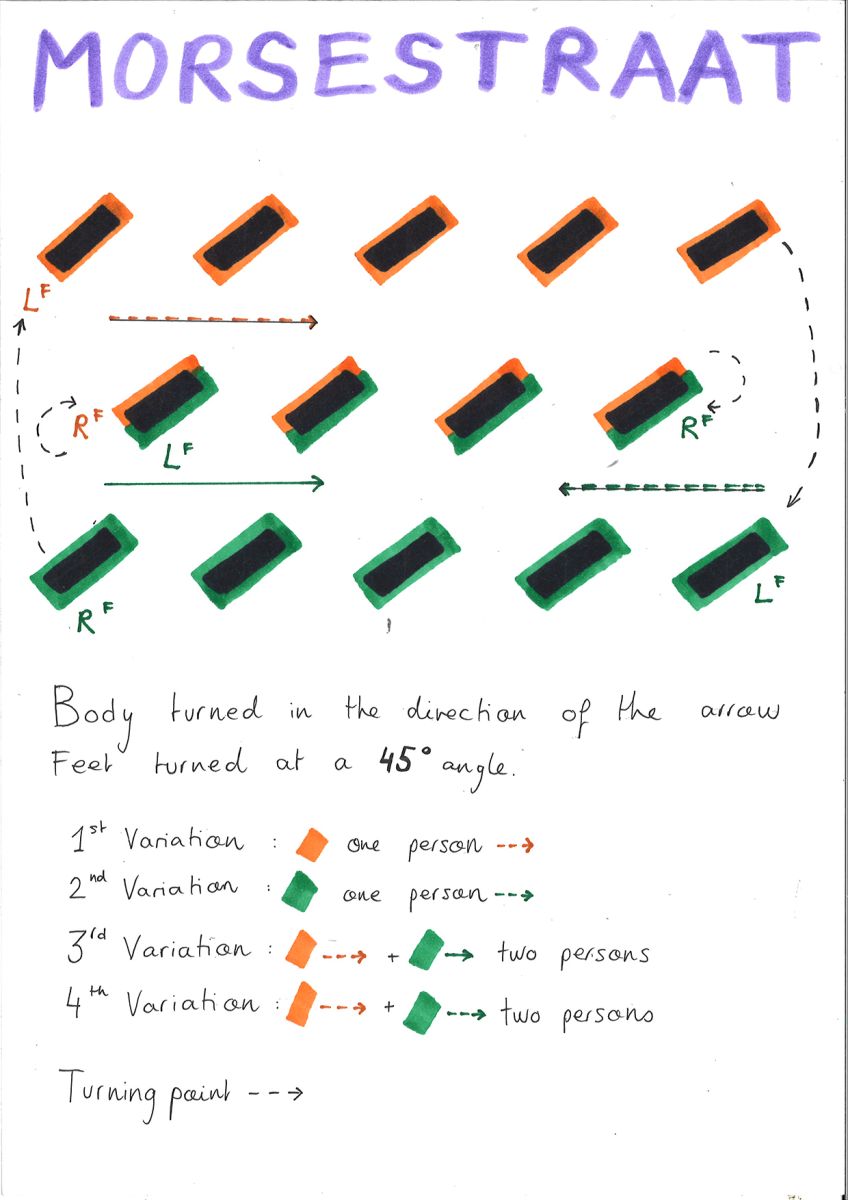 MORSESTRAAT
L F
R F
R F
L F
L F
R F
Body turned in the direction of the arrow
Feet turned at a 45° angle.
1st Variation : one person
2nd Variation : one person
3rd Variation : + two persons
4th Variation : + two persons
Turning point